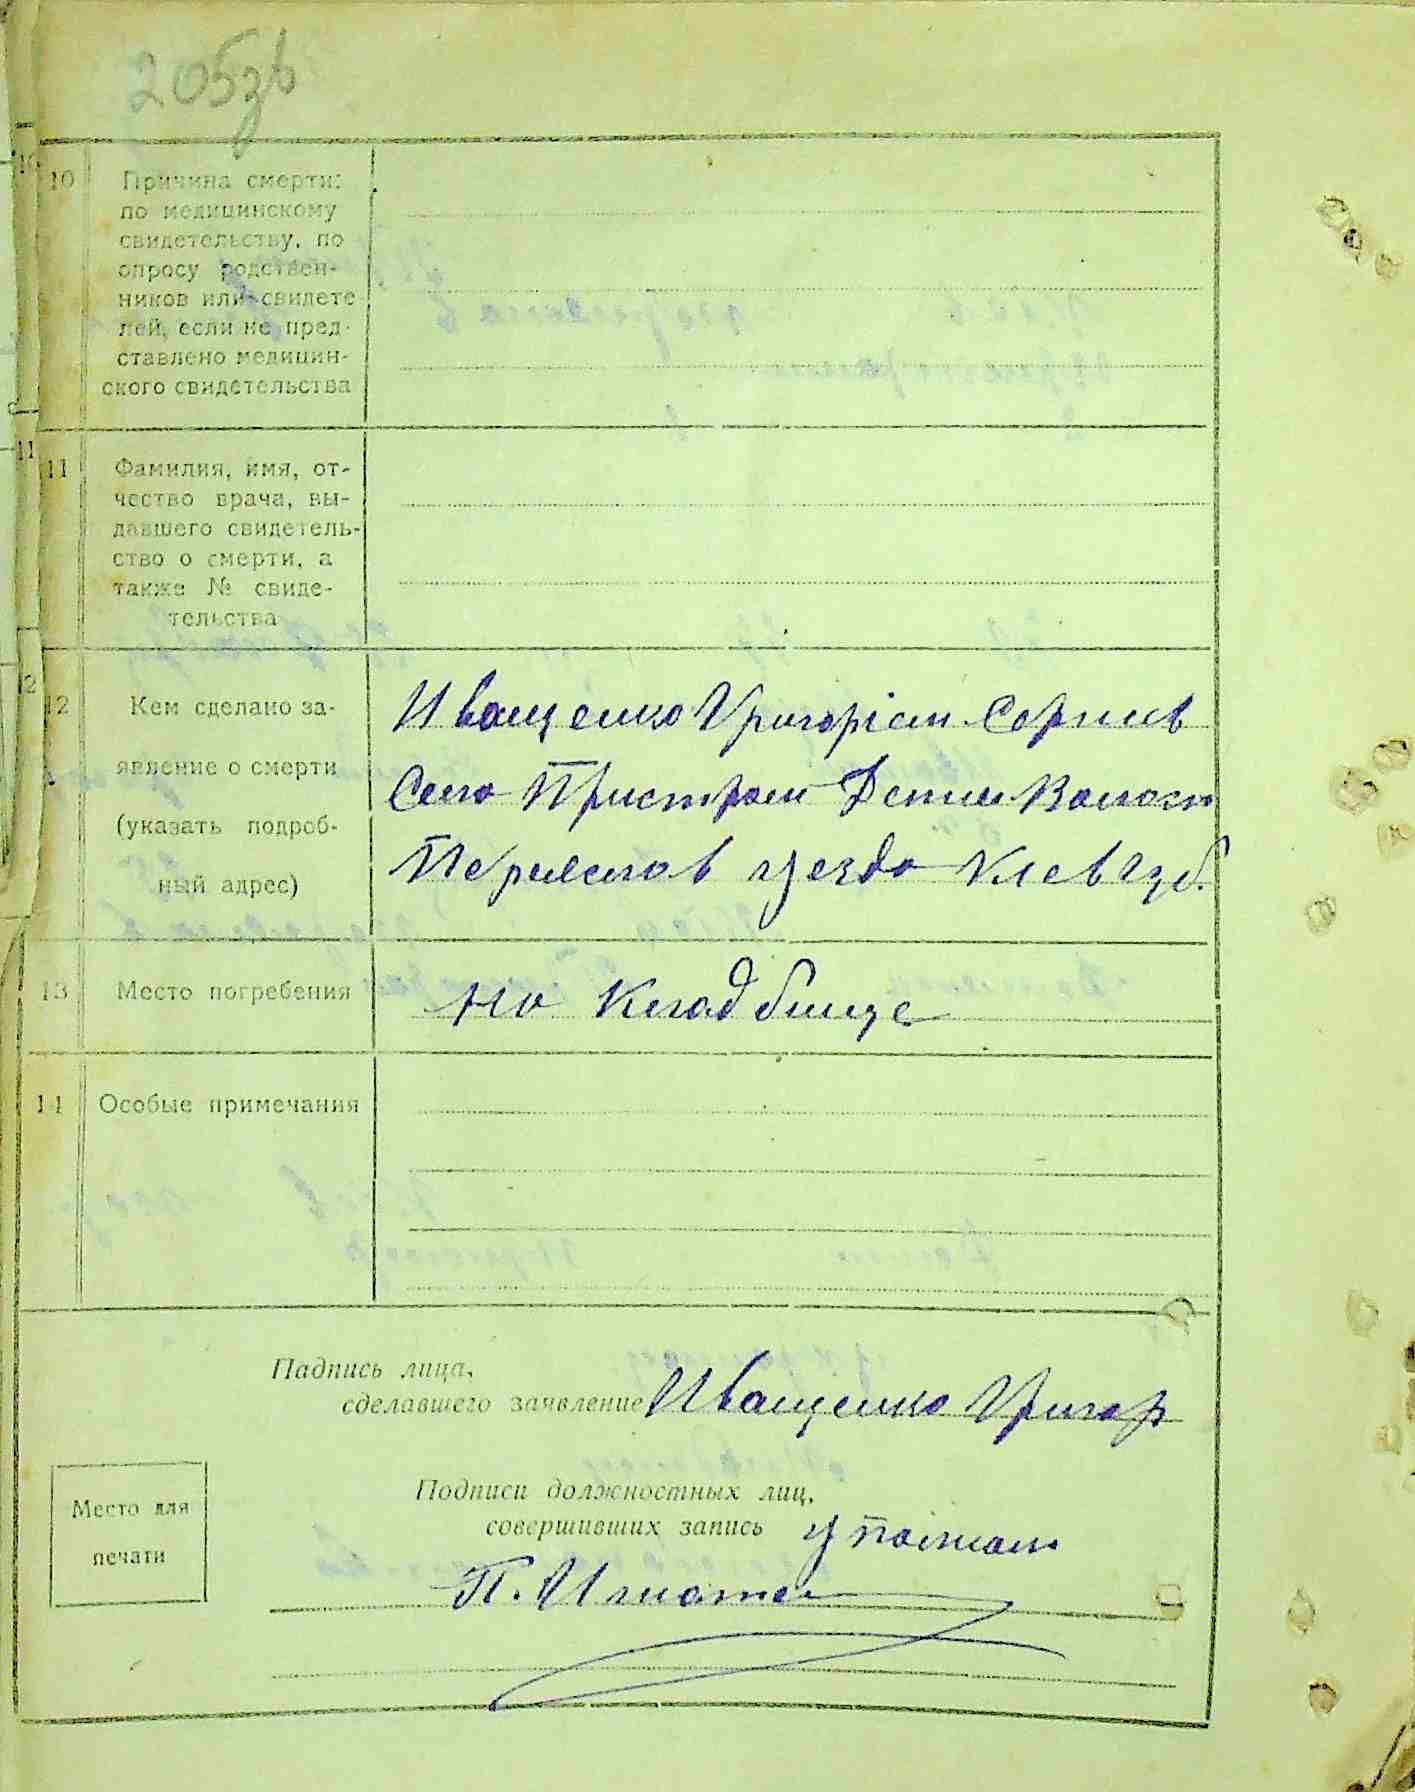 205зв
10 Причина смерти:
по медицинскому
свидетельству, по
опросу родствен-
ников или свидете
лей, если не пред-
ставлено медицин-
ского свидетельства
11 Фамилия, имя, от-
чество врача, вы-
давшего свидетель-
ство о смерти, а
также № свиде-
тельства
12 Кем сделано за-
явление о смерти
(указать подроб-
ный адрес)
Иващенко Григоріи
Село Пристроми
уезда Киев губ.
13 Место погребения
на Кладбище
14 Особые примечания
Падпись лица,
сделавшего заявление Иващенко Григор
Подписи должностных лиц,
совершивших запись
Место для
печати